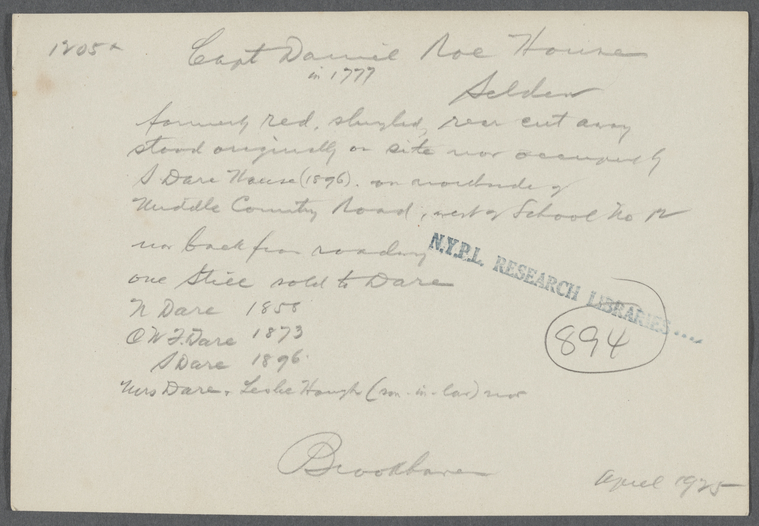 1205a
Capt Daniel Roe House
in 1777
Selden
formerly red, shingled, rear cut away
stood originally on site now occupied by
S Dare House (1896). on northside of
Middle Country Road, west of School No 12
now back from roadway
one Still sold to Dare
N.Y.P.L. RESEARCH LIBRARIES
N Dare 1858
O W F. Dare 1873
894
S Dare 1896
Mrs Dare, Leslie (son-in-law) now
Brookhaven
April 1925